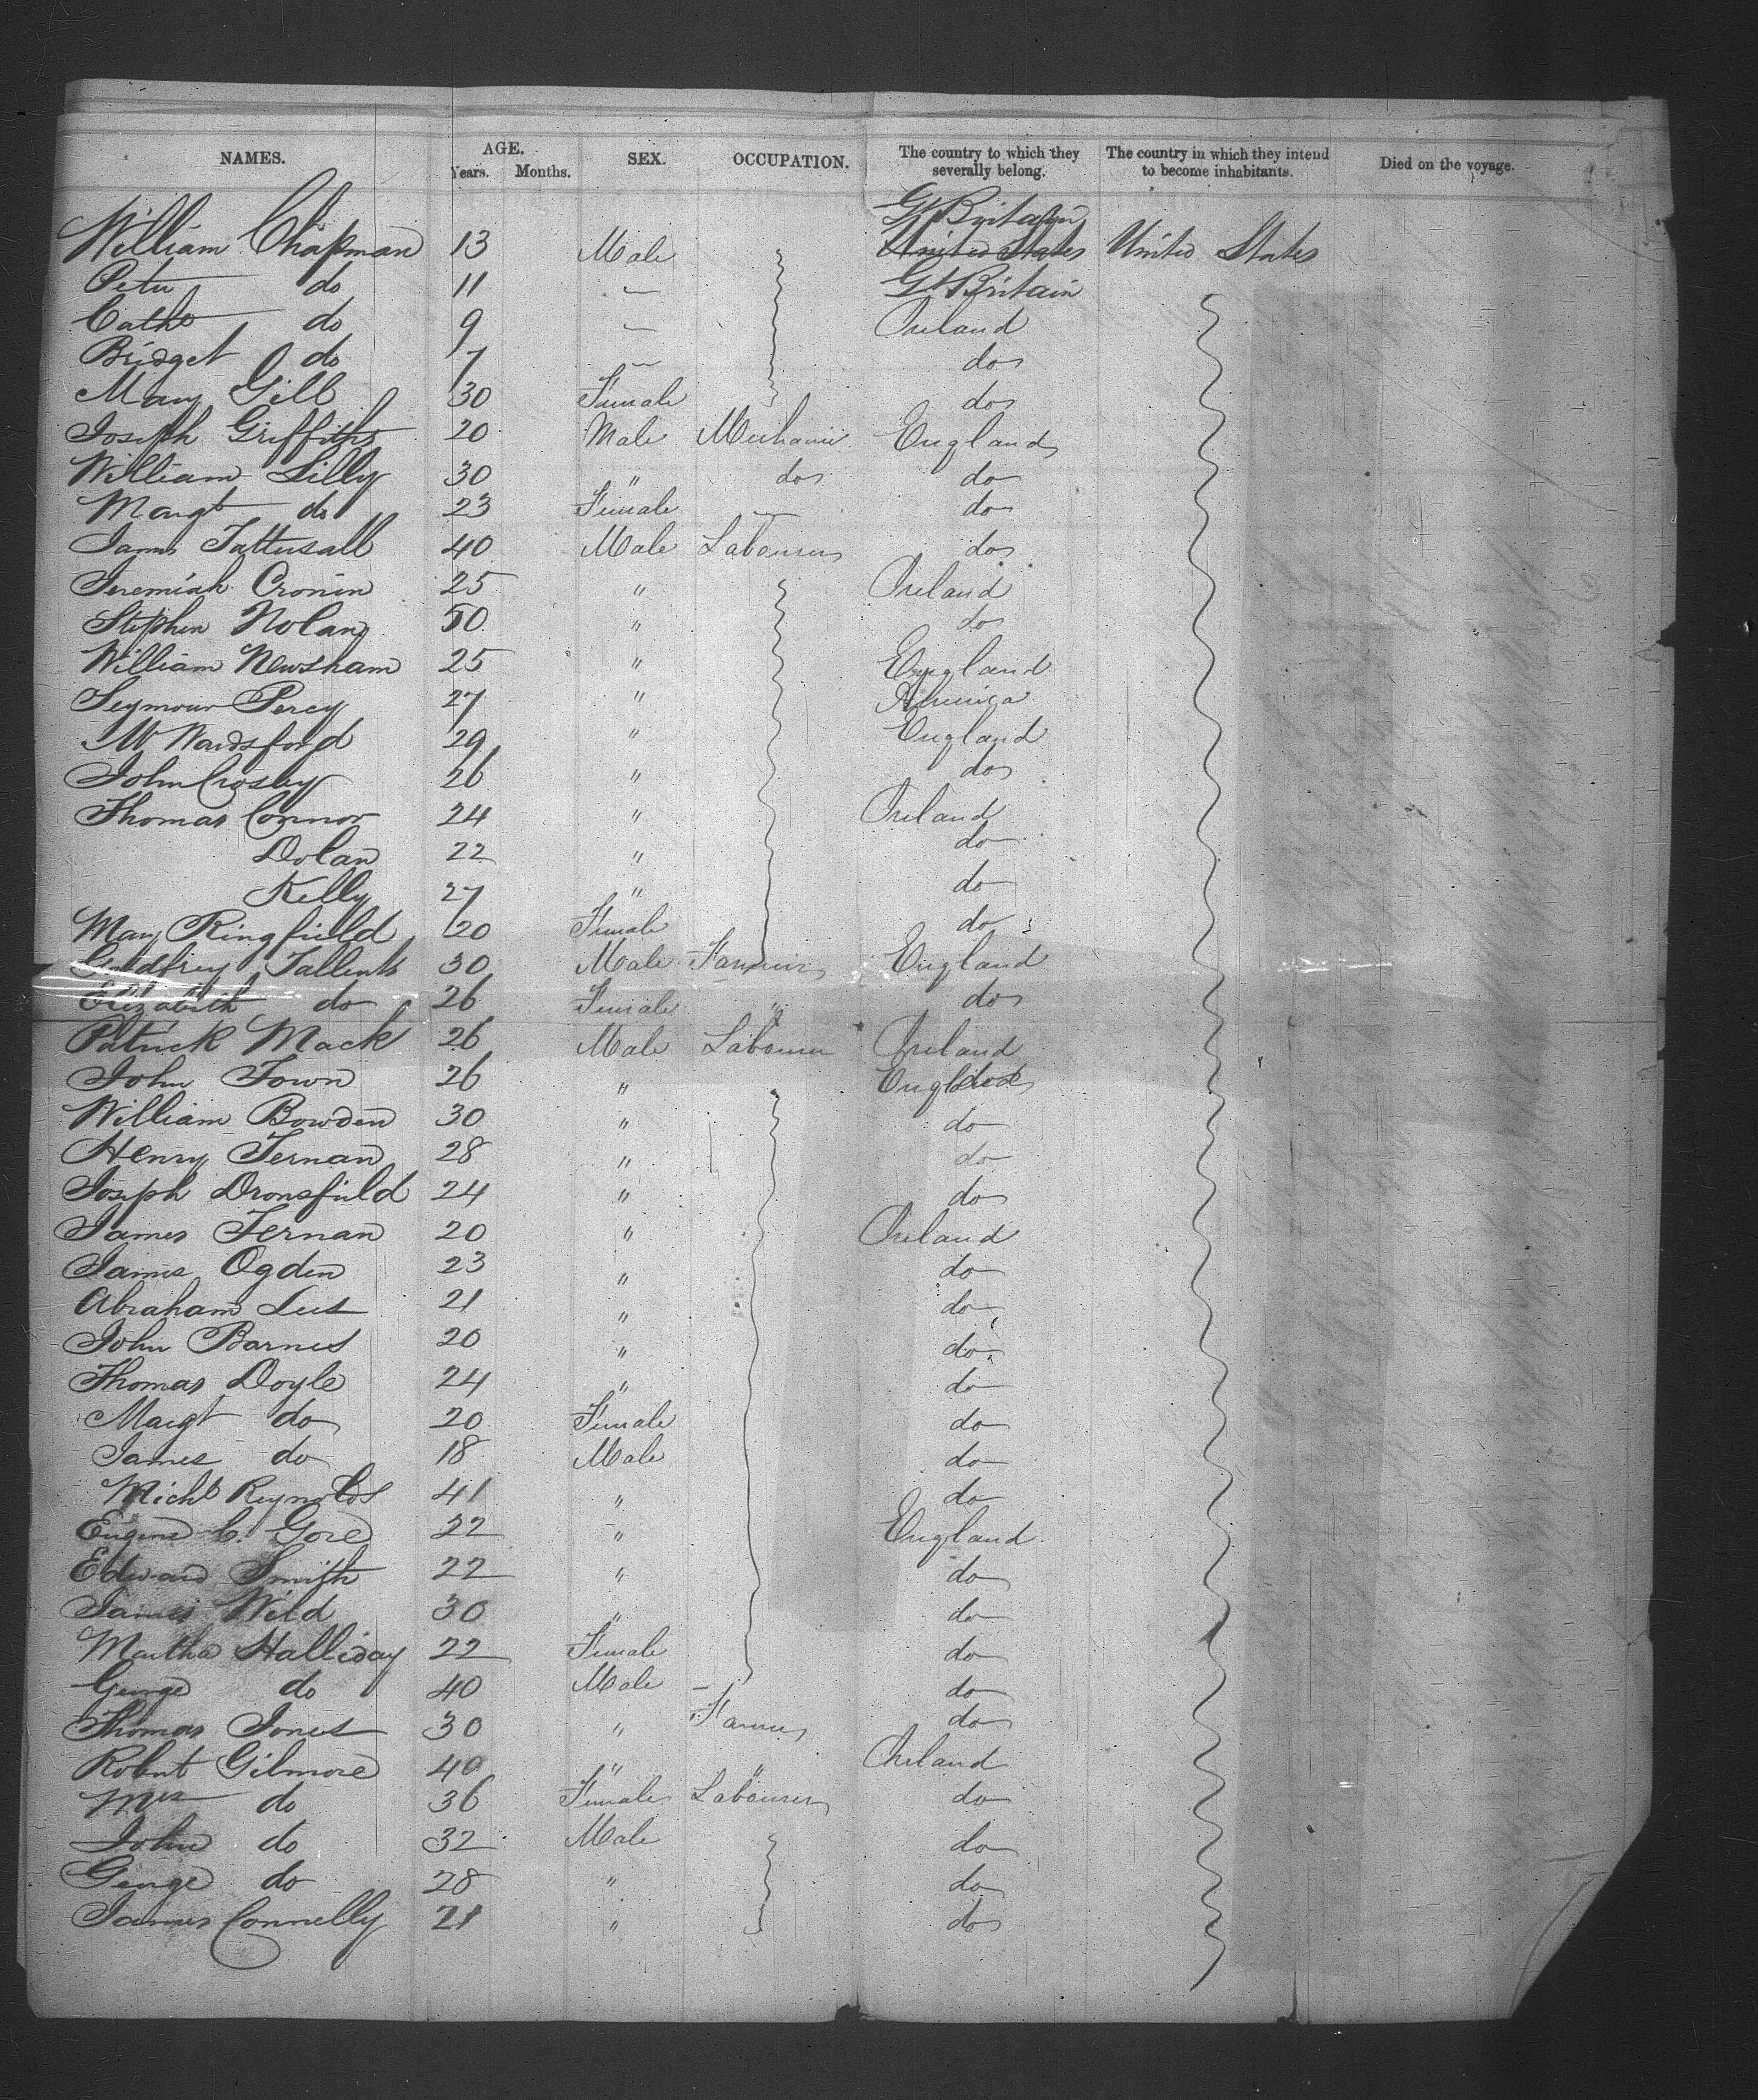 NAMES. AGE. Years. Months. SEX. OCCUPATION. The country to which they severally belong. The country in which they intend to become inhabitants. Died on the voyage.
Gt Britain
William Chapman 13 Male United States United States
Peter do 11 Gt Britain
Cathe do 9 Ireland
Bridget do 7 do
Mary Gill 30 Female do
Joseph Griffiths 20 Male Mechanic England
William Lilly 30 " do do
Margt do 23 Female — do
James Tattersall 40 Male Labourer do
Jeremiah Cronin 25 " Ireland
Stephen Nolan 50 " do
William Newsham 25 " England
Seymour Percy 27 " America
29 " England
John Crosby 26 " do
Thomas Connor 24 " Ireland
Dolan 22 " do
Kelly 27 " do
Mary Ringfield 20 Female do
Godfrey Tallents 30 Male England
Elizabeth do 26 Female " do
Patrick Mack 26 Male Labourer Ireland
John Town 26 " England
William Bowden 30 " do
Henry Fernan 28 " do
Joseph Dronsfield 24 " do
James Fernan 20 " Ireland
James Ogden 23 " do
Abraham Lees 21 " do
John Barnes 20 " do
Thomas Doyle 24 " do
Margt do 20 Female do
James do 18 Male do
Michl Reynolds 41 " do
Eugene C. Gore 22 " England
Edward Smith 22 " do
James Wild 30 " do
Martha Halliday 22 Female do
George do 40 Male — do
Thomas Jones 30 " Farmer do
Robert Gilmore 40 " " Ireland
Mrs do 36 Female Labourer do
John do 32 Male do
George do 28 " do
James Connelly 21 " do